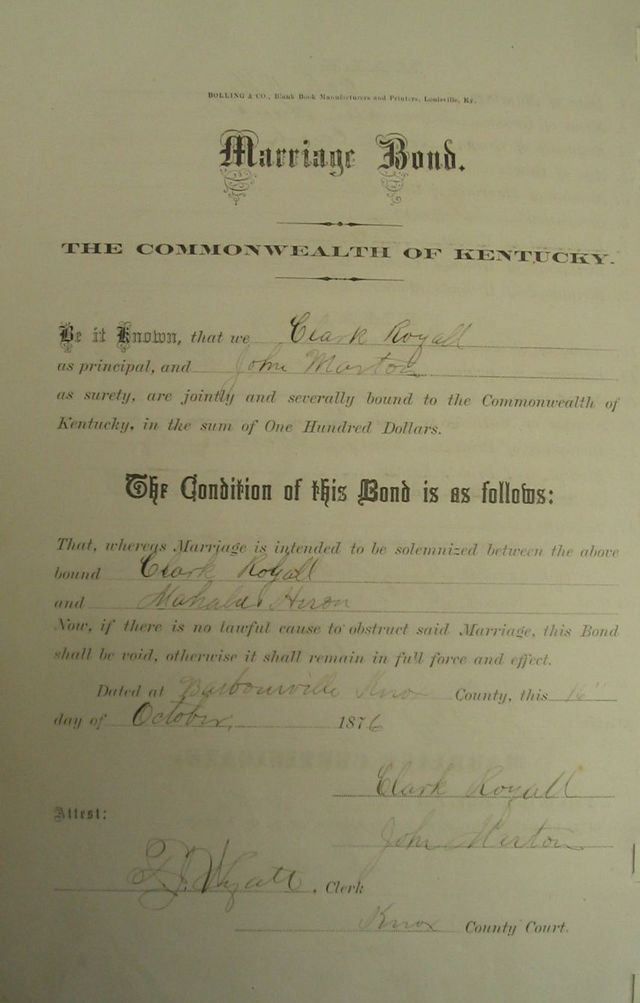 BOLLING & CO., Blank Book Manufacturers and Printers, Louisville, Ky.
Marriage Bond.
THE COMMONWEALTH OF KENTUCKY.
Be it Known, that we Clark Royall
as principal, and John Marton
as surety, are jointly and severally bound to the Commonwealth of
Kentucky, in the sum of One Hundred Dollars.
The Condition of this Bond is as follows:
That, whereas Marriage is intended to be solemnized between the above
bound Clark Royall
and Mahala Hiron
Now, if there is no lawful cause to obstruct said Marriage, this Bond
shall be void, otherwise it shall remain in full force and effect.
Dated at Barbourville Knox County, this 16"
day of October, 1876
Clark Royall
Attest:
John
Wyatt, Clerk
Knox County Court.